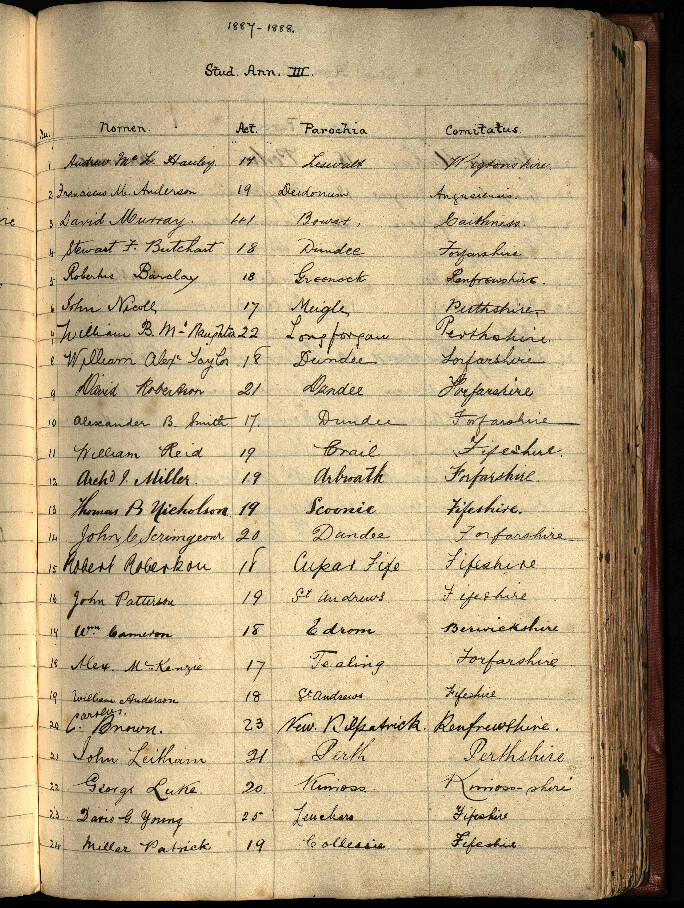 1887-1888.
Stud. Ann. III.
Nu. Nomen. Aet. Parochia Comitatus.
1 Andrew Mc L. 17 Leswalt Wigtonshire.
2 Franciscus M. Anderson 19 Deidonum Angusiensis.
3 David Murray. 41 Bower, Caithness.
4 Stewart F. Butchart 18 Dundee Forfarshire
5 Robertus Barclay 18 Greenock Renfrewshire.
6 John Nicoll 17 Meigle Perthshire
7 William B. Mc Naughton 22 Longforgan Perthshire.
8 William Alexr Taylor 18 Dundee Forfarshire
9 David Robertson 21 Dundee Forfarshire
10 Alexander B. Smith 17. Dundee Forfarshire
11 William Reid 19 Crail Fifeshire.
12 Archd J. Miller. 19 Arbroath Forfarshire.
13 Thomas B Nicholson 19 Scoonie Fifeshire.
14 John C Scrimgeour 20 Dundee Forfarshire
15 Robert Robertson 18 Cupar Fife Fifeshire
16 John Patterson 19 St Andrews Fifeshire
17 Wm Cameron 18 Edrom Berwickshire
18 Alex. McKenzie 17 Tealing Forfarshire
19 William Anderson 18 St Andrews Fifeshire
Carolus.
20 C. Brown. 23 New. Kilpatrick. Renfrewshire.
21 John Leitham 21 Perth Perthshire
22 George Luke. 20. Kinross Kinross-shire
23 David G. Young 25 Leuchars Fifeshire
24 Millar Patrick 19 Collessie Fifeshire